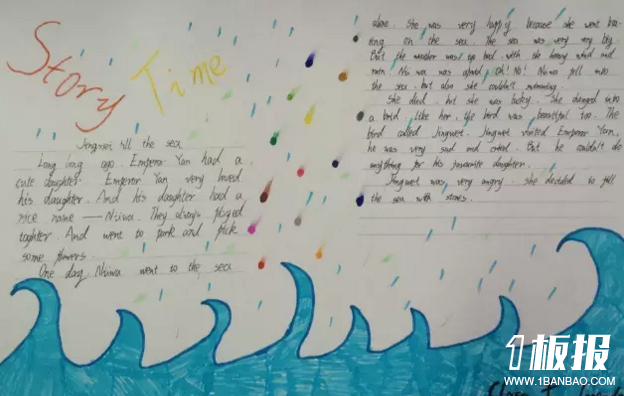 Story Time
Jingwei fill the sea
Long long ago. Emperor Yan had a
cute daughter. Emperor Yan very loved
his daughter. And his daughter had a
nice name — Nüwa. They always played
togther. And went to park and pick
some flowers.
One day, Nüwa went to the sea
alone. She was very happy because she went boa-
ting on the sea. The sea was very very big.
But the weather was so bad, with the heavy wind and
rain. Nüwa was afraid, Oh! No! Nüwa fell into
the sea. but also she couldn't swimming.
She died, but she was lucky. She changed into
a bird. like her, the bird was beautiful too. The
bird called Jingwei. Jingwei visited Emperor Yan,
he was very sad and cried. But he couldn't do
anything for his favourite daughter.
Jingwei was very angry. she decided to fill
the sea with stones.
1板报
WWW.1BANBAO.COM
Class